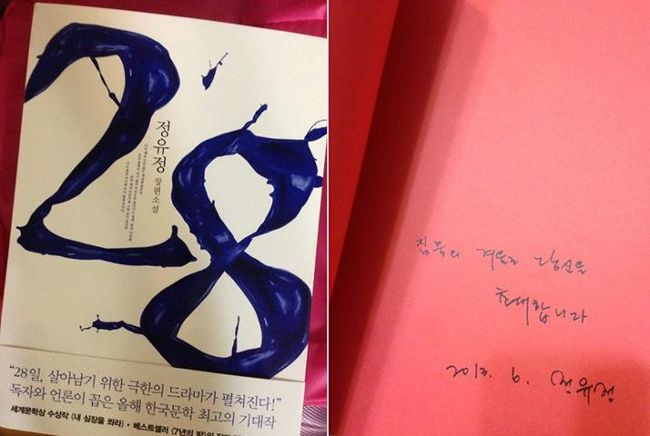 28
정유정
장편소설
“28일, 살아남기 위한 극한의 드라마가 펼쳐진다!”
독자와 언론이 꼽은 올해 한국문학 최고의 기대작
세계문학상 수상작 《내 심장을 쏴라》 • 베스트셀러 《7년의 밤》의
침묵의 겨울로 당신을
초대합니다
2013. 6. 정유정